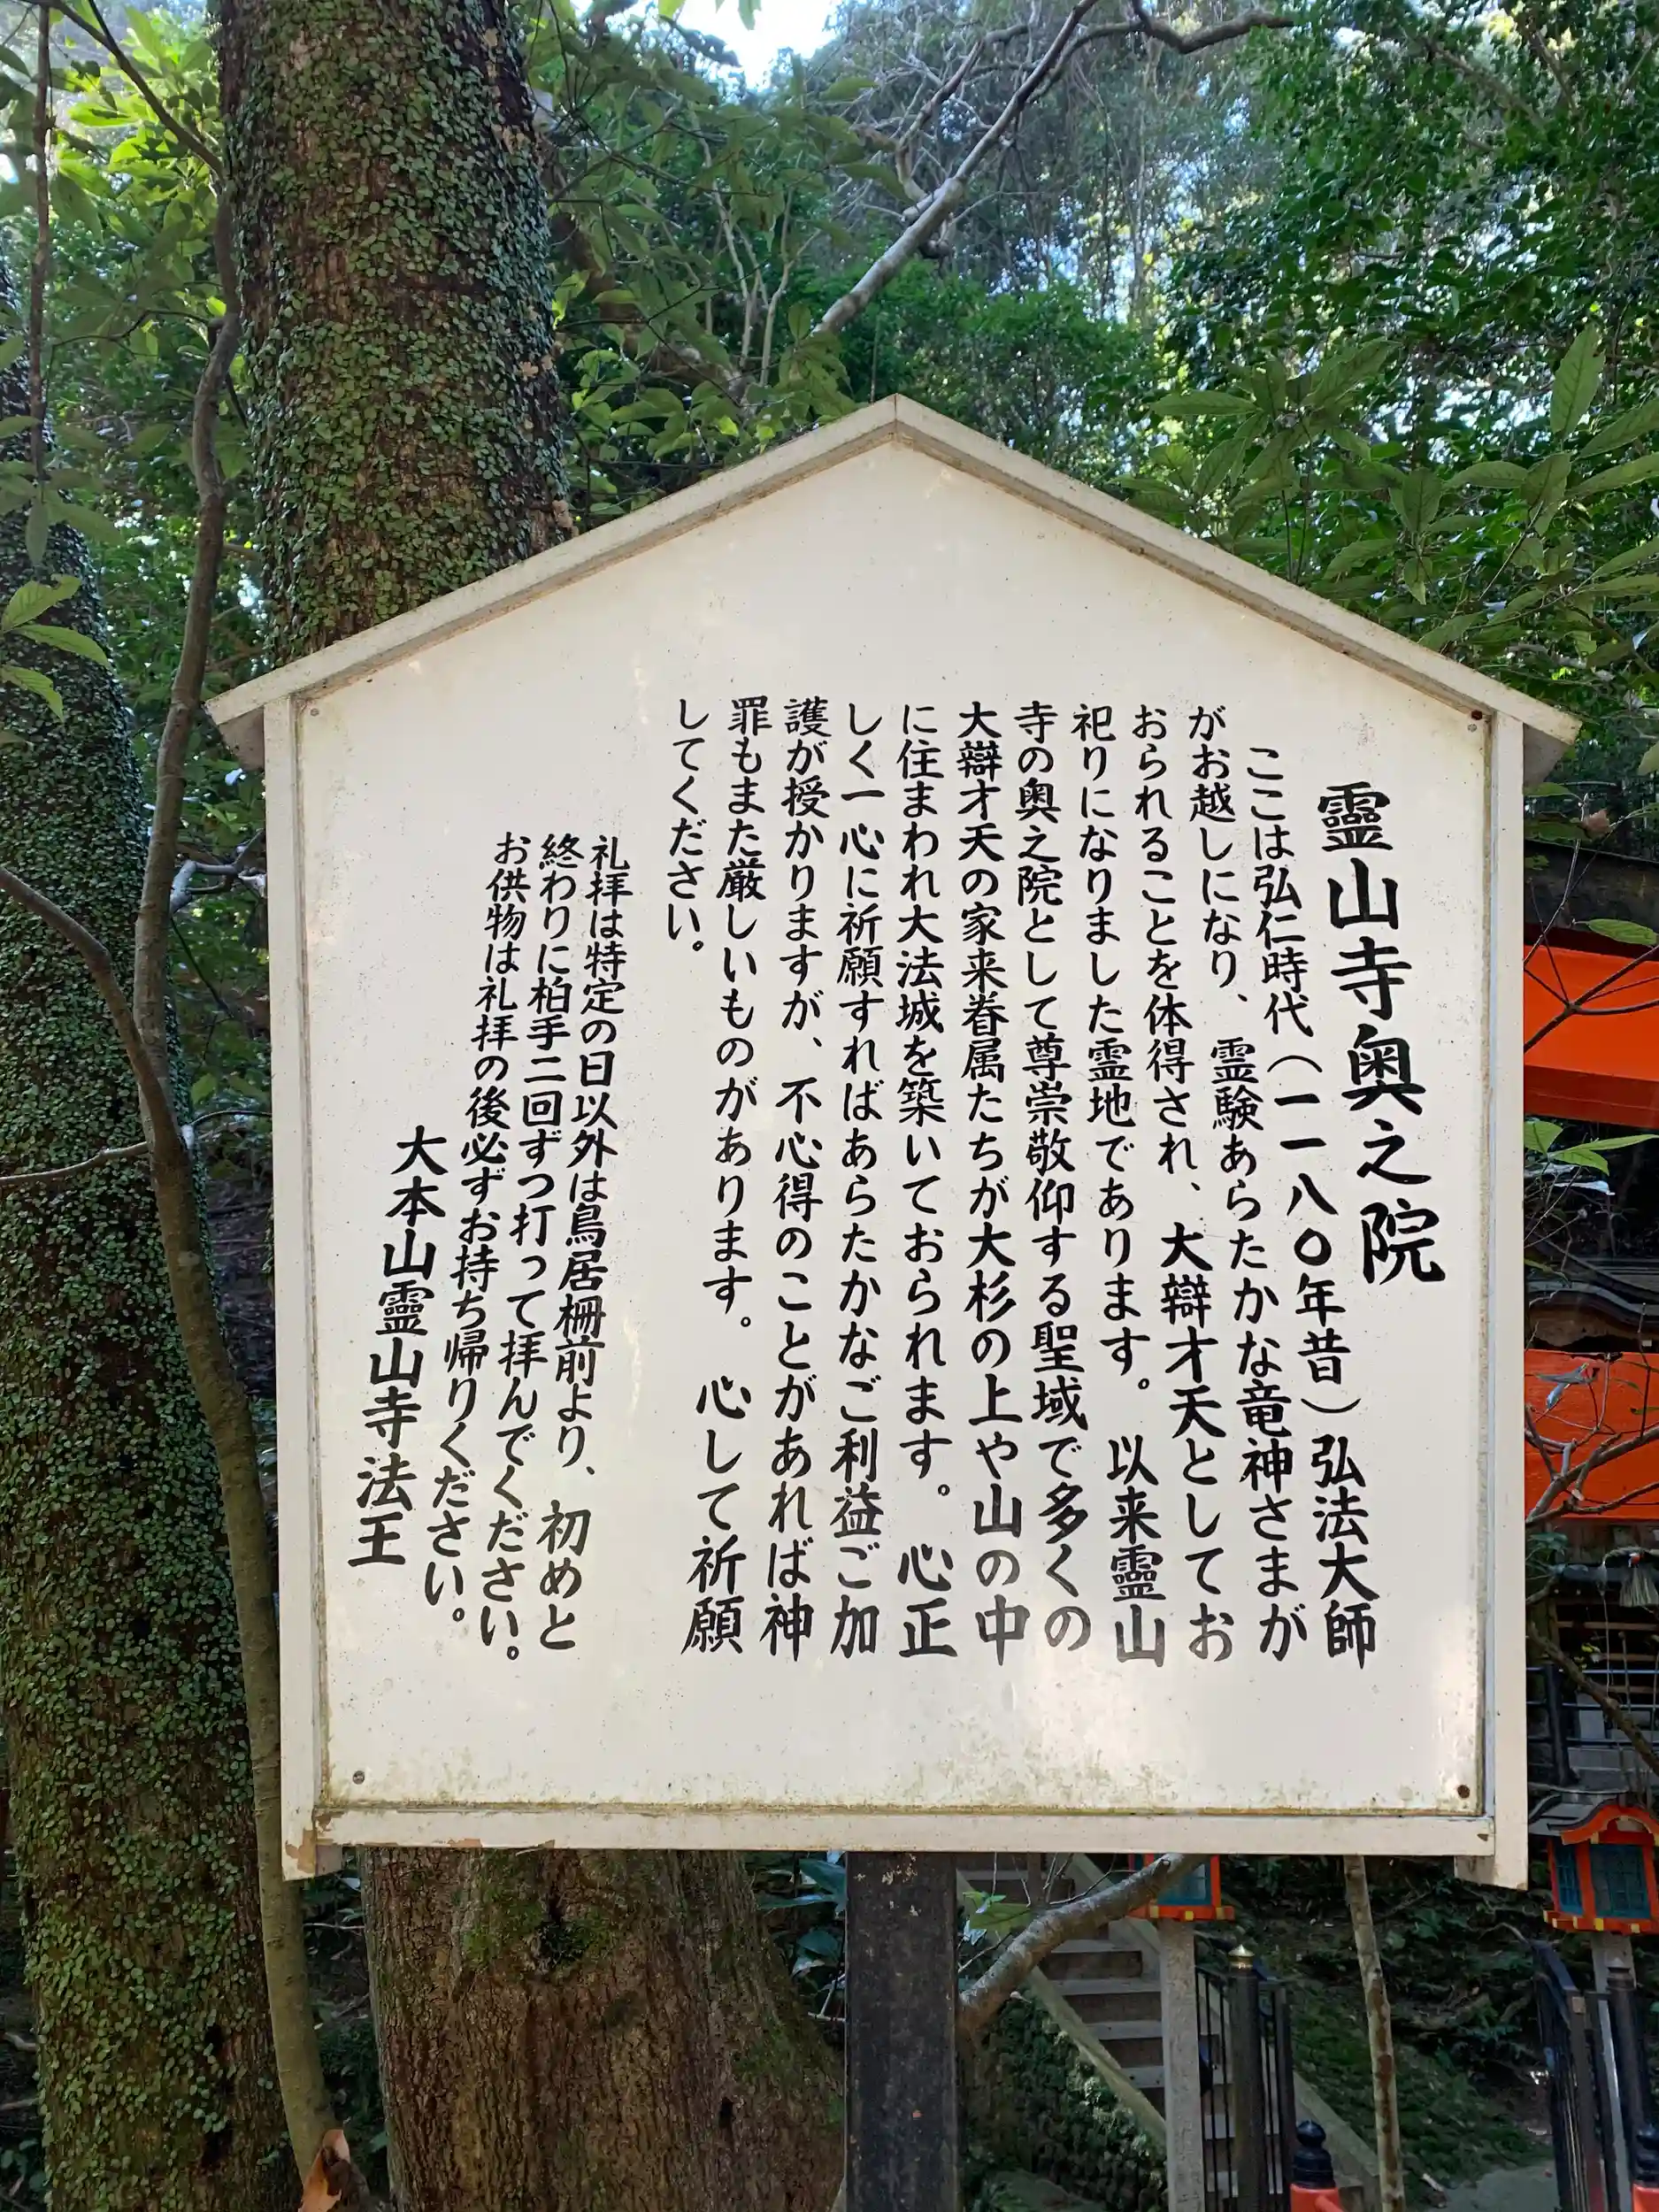 靈山寺奥之院
ここは弘仁時代(一一八〇年昔)弘法大師
がお越しになり、霊験あらたかな竜神さまが
おられることを体得され、大辯才天としてお
祀りになりました霊地であります。以来靈山
寺の奥之院として尊崇敬仰する聖域で多くの
大辯才天の家来眷属たちが大杉の上や山の中
に住まわれ大法城を築いておられます。心正
しく一心に祈願すればあらたかなご利益ご加
護が授かりますが、不心得のことがあれば神
罪もまた厳しいものがあります。心して祈願
してください。
礼拝は特定の日以外は鳥居柵前より、初めと
終わりに柏手二回ずつ打って拝んでください。
お供物は礼拝の後必ずお持ち帰りください。
大本山靈山寺法王